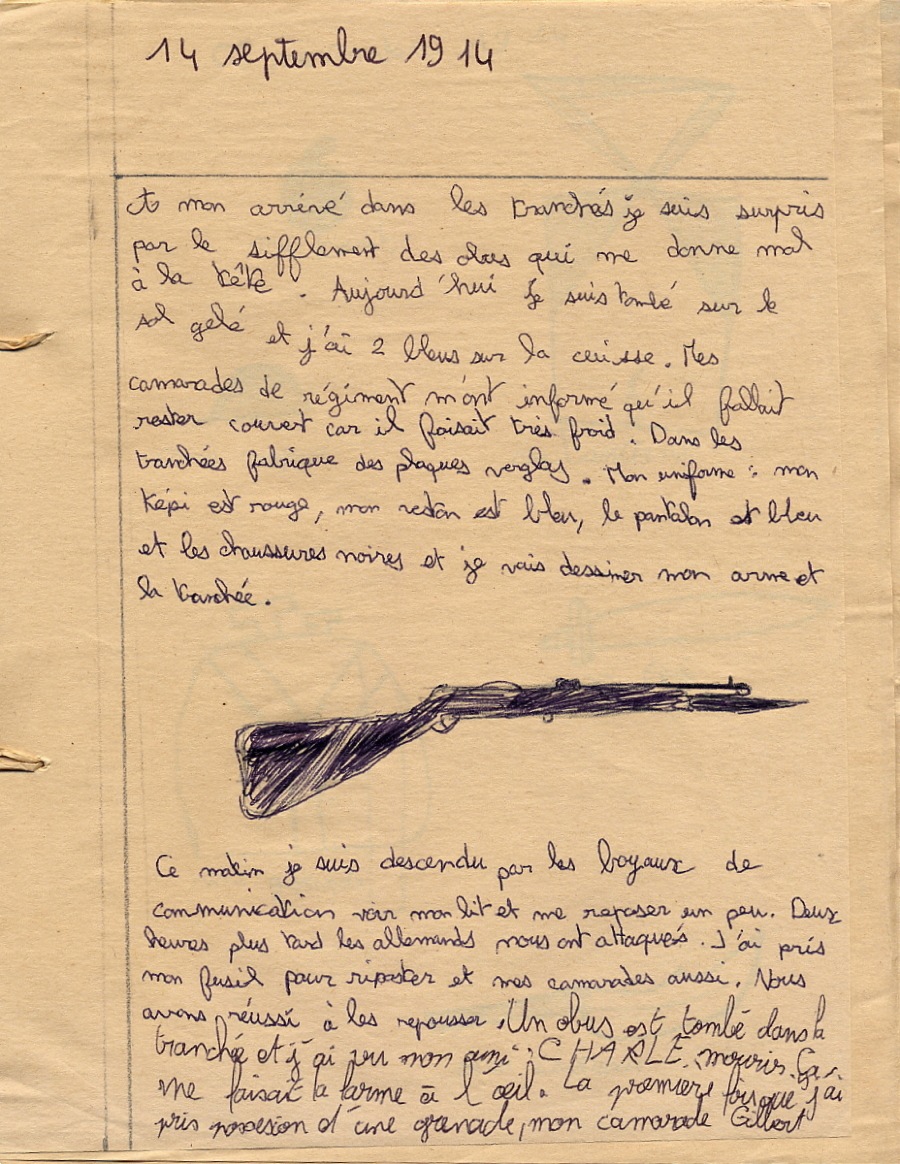 14 septembre 1914
A mon arrivé dans les tranchés je suis surpris
par le sifflement des obus qui me donne mal
à la tête. Aujourd'hui je suis tombé sur le
sol gelé et j'ai 2 bleus sur la cuisse. Mes
camarades de régiment m'ont informé qu'il fallait
rester couvert car il faisait très froid. Dans les
tranchées fabrique des plaques verglas. Mon uniforme : mon
képi est rouge, mon veston est bleu, le pantalon est bleu
et les chaussures noires et je vais dessiner mon arme et
la tranchée.
Ce matin je suis descendu par les boyaux de
communication voir mon lit et me reposer un peu. Deux
heures plus tard les allemands nous ont attaqués. J'ai pris
mon fusil pour riposter et mes camarades aussi. Nous
avons réussi à les repousser. Un obus est tombé dans la
tranchée et j'ai vu mon ami : CHARLE mourir. Ça
me faisait la larme à l'oeil. La première fois que j'ai
pris possesion d'une grenade, mon camarade Gilbert